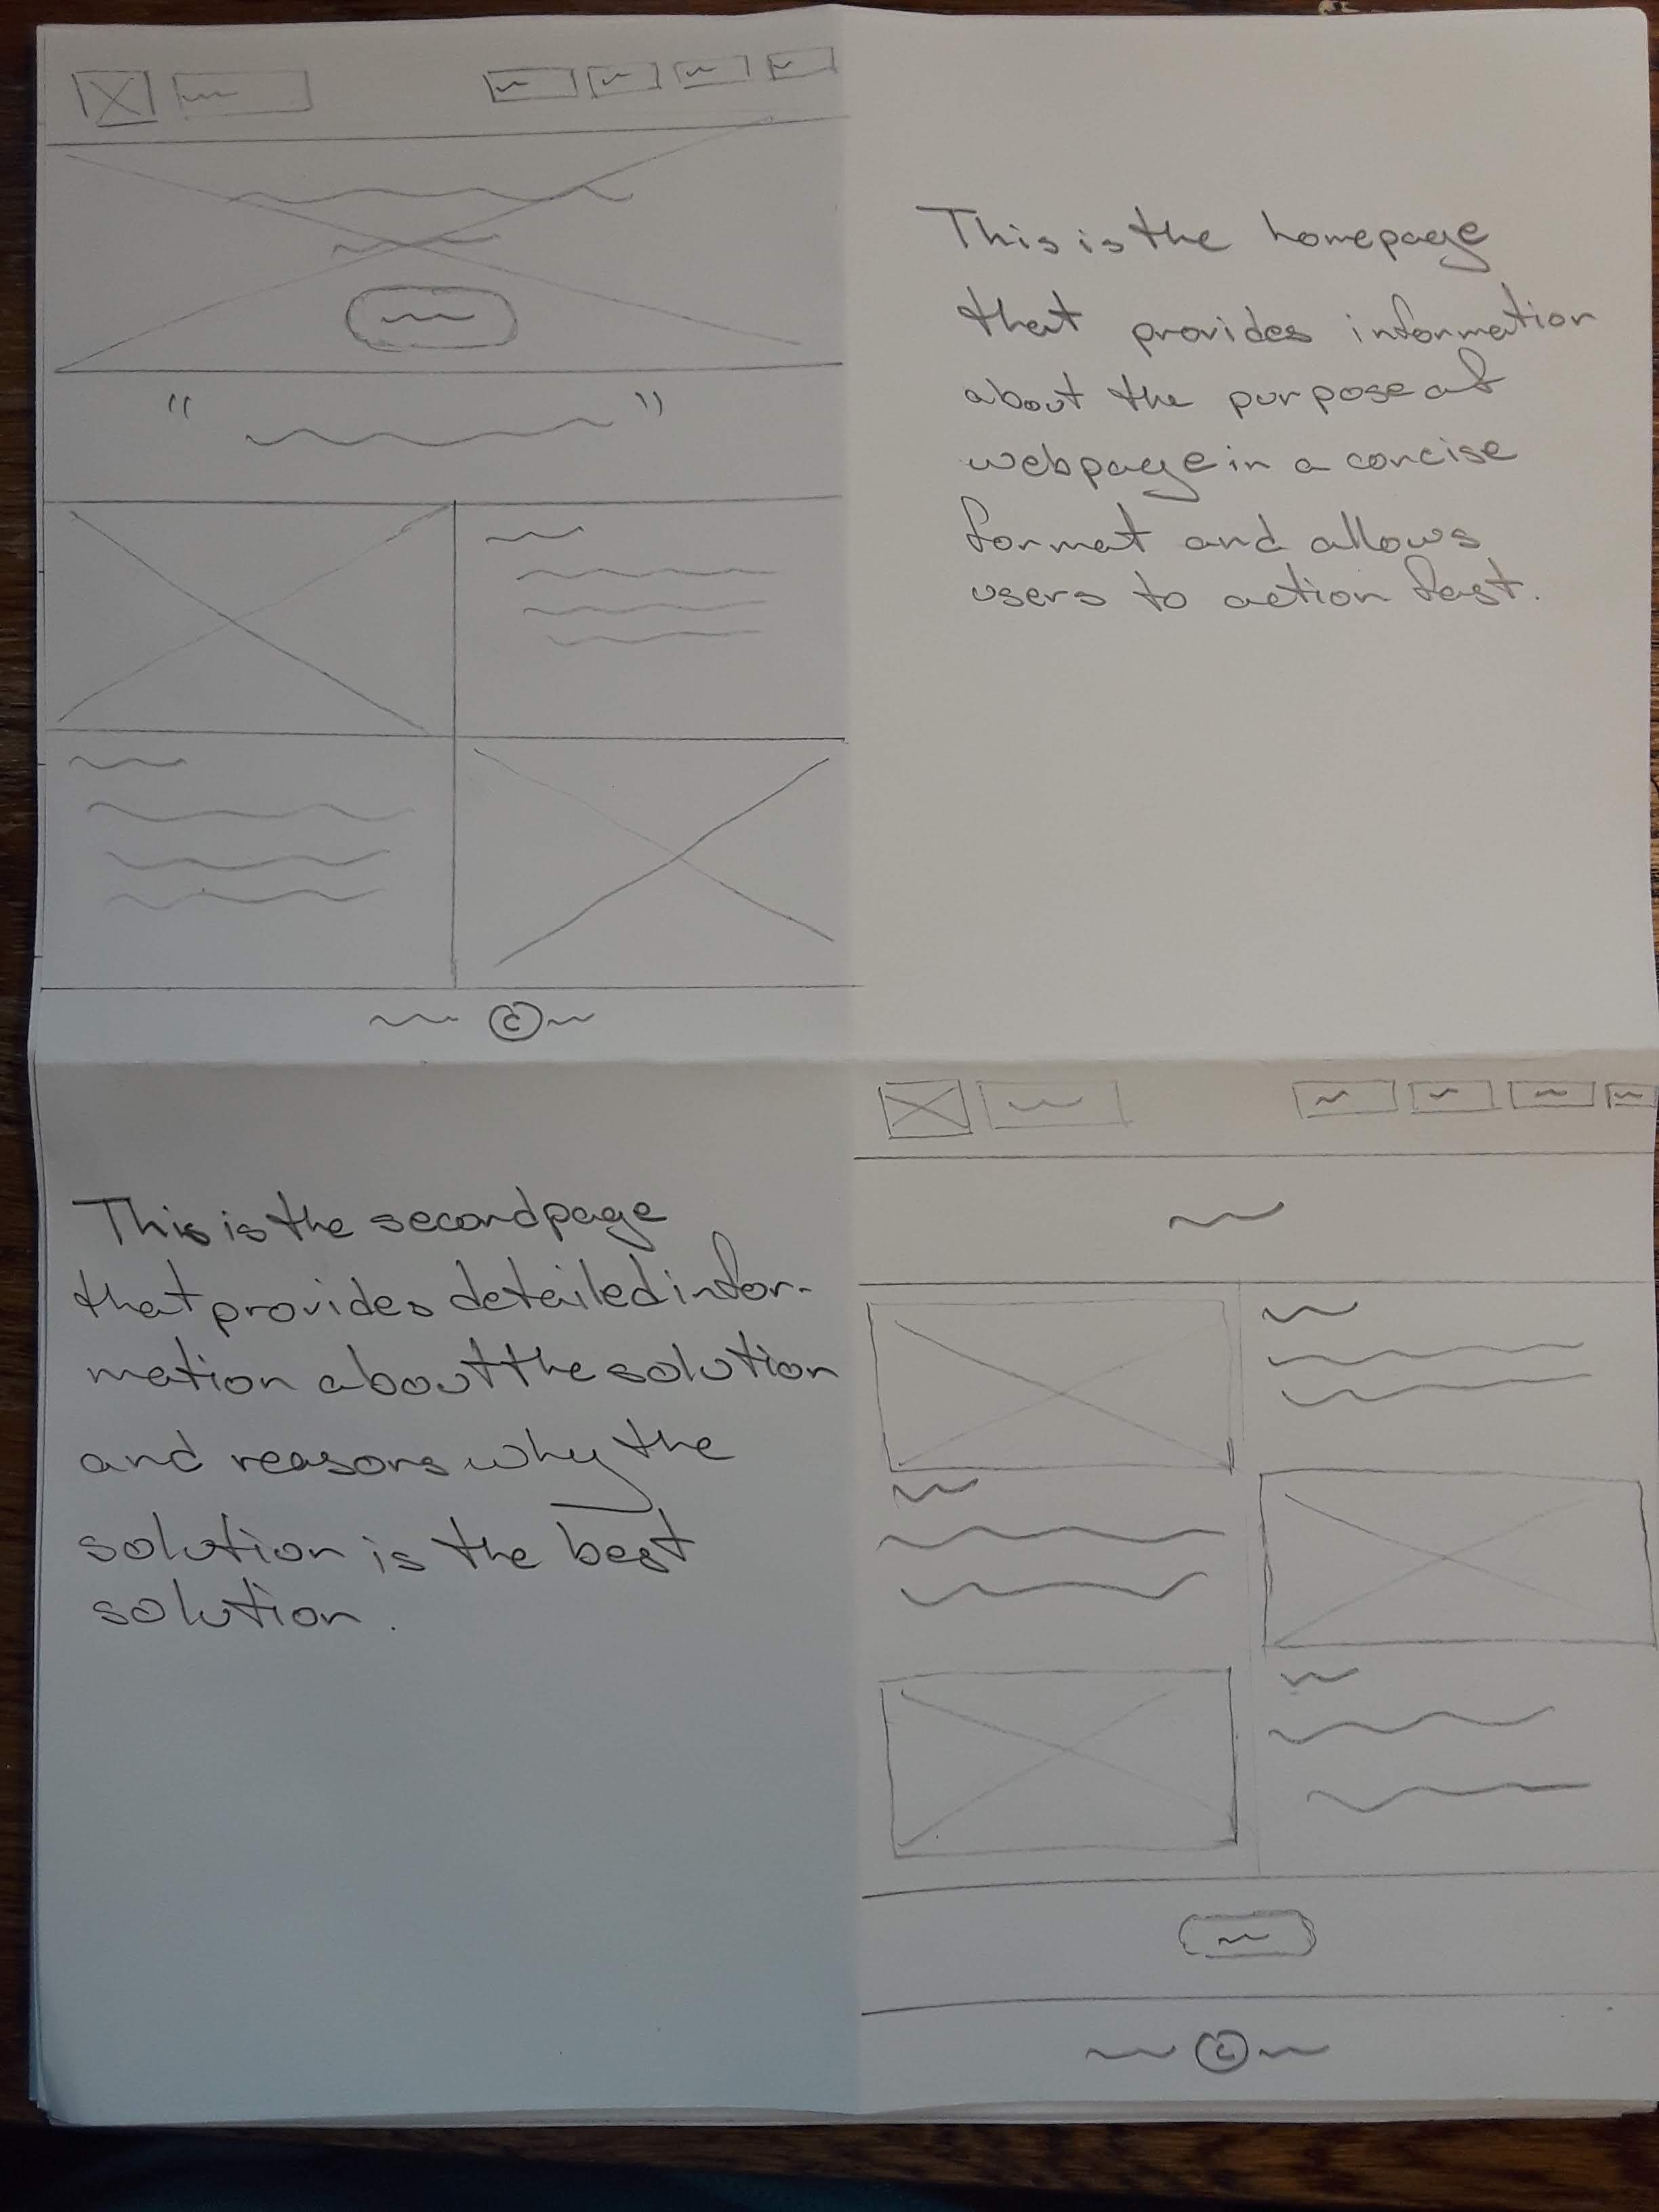 “ ”
This is the homepage
that provides information
about the purpose of
webpage in a concise
format and allows
users to action fast.
©
This is the second page
that provides detailed infor-
mation about the solution
and reasons why the
solution is the best
solution.
©